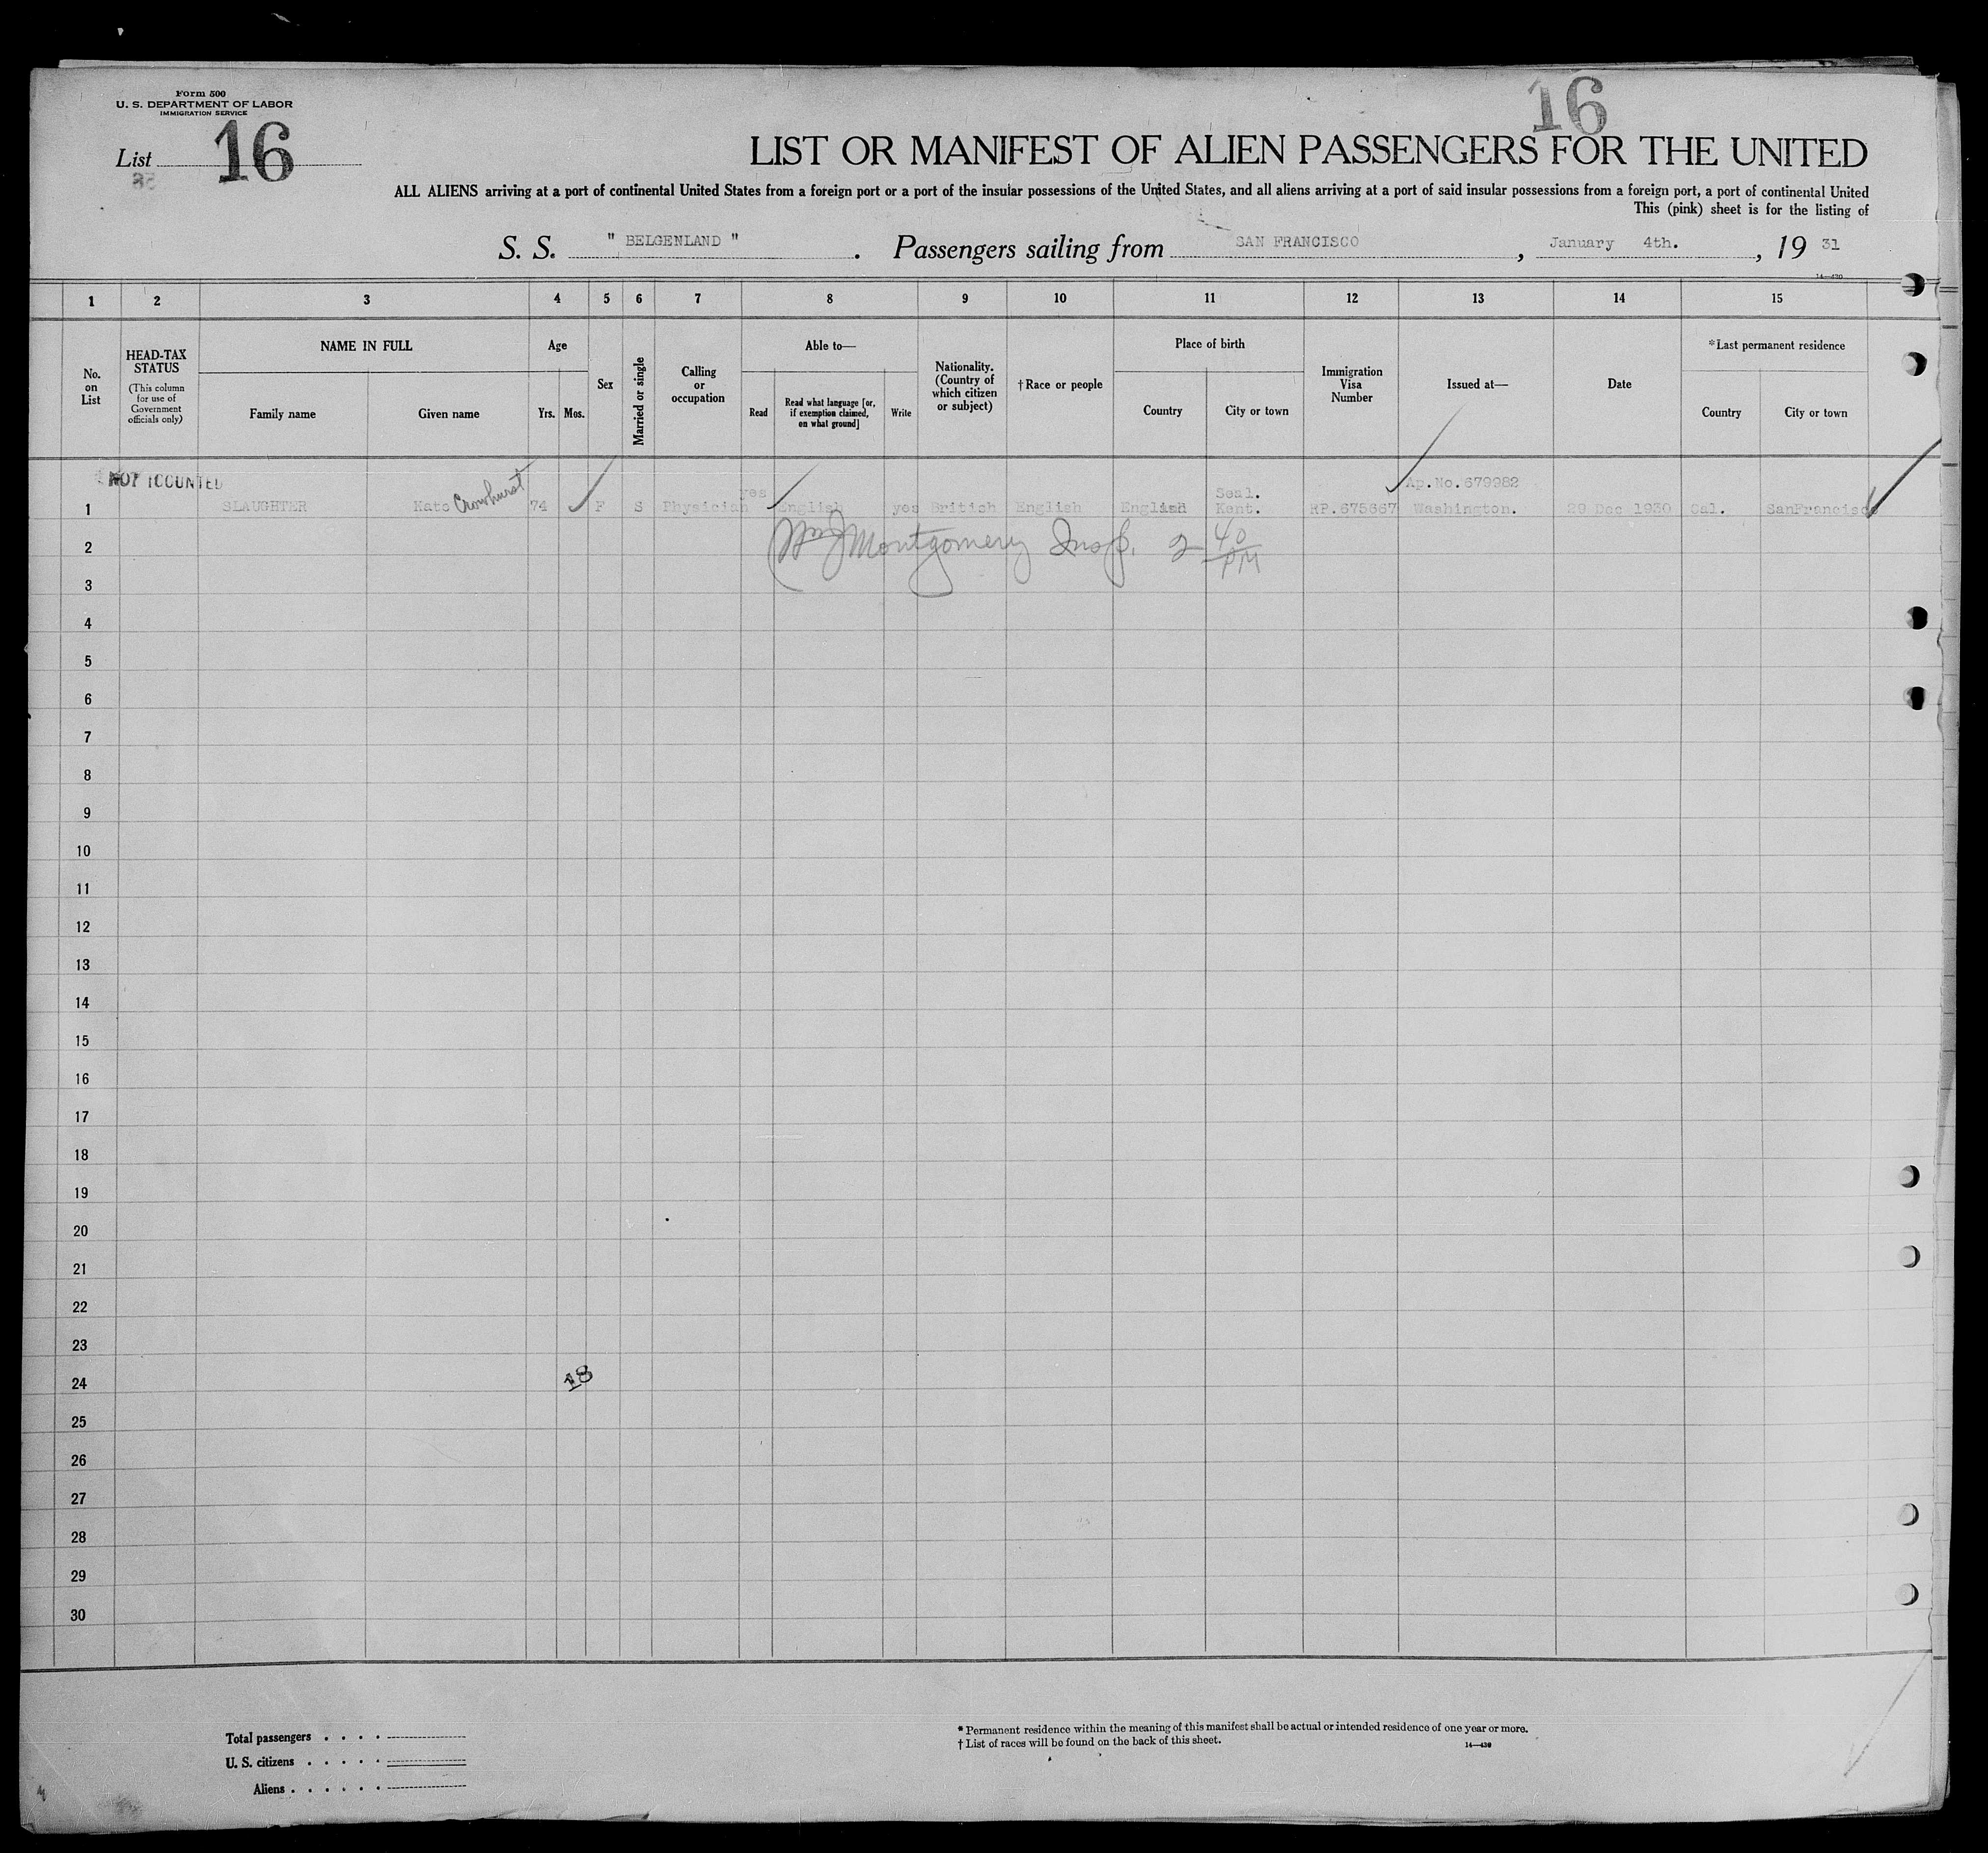 Form 500
U. S. DEPARTMENT OF LABOR
IMMIGRATION SERVICE
List 16
16
LIST OR MANIFEST OF ALIEN PASSENGERS FOR THE UNITED
ALL ALIENS arriving at a port of continental United States from a foreign port or a port of the insular possessions of the United States, and all aliens arriving at a port of said insular possessions from a foreign port, a port of continental United
This (pink) sheet is for the listing of
S. S. " BELGENLAND " . Passengers sailing from SAN FRANCISCO , January 4th. , 19 31
14—430
1 2 3 4 5 6 7 8 9 10 11 12 13 14 15
No. on List
HEAD-TAX STATUS
(This column for use of Government officials only)
NAME IN FULL
Family name Given name
Age
Yrs. Mos.
Sex
Married or single
Calling or occupation
Able to—
Read
Read what language [or, if exemption claimed, on what ground]
Write
Nationality. (Country of which citizen or subject)
†Race or people
Place of birth
Country City or town
Immigration Visa Number
Issued at—
Date
*Last permanent residence
Country City or town
NOT COUNTED
1 SLAUGHTER Kate Crowhurst 74 F S Physician yes English yes British English English Seal. Kent. RP.675667 Ap.No.679982 Washington. 29 Dec 1930 Cal. SanFrancisco
2 Wm J Montgomery Insp. 2 40 PM
3
4
5
6
7
8
9
10
11
12
13
14
15
16
17
18
19
20
21
22
23
24 18
25
26
27
28
29
30
Total passengers . . . .
U. S. citizens . . . . .
Aliens . . . . . .
* Permanent residence within the meaning of this manifest shall be actual or intended residence of one year or more.
† List of races will be found on the back of this sheet.
14—430